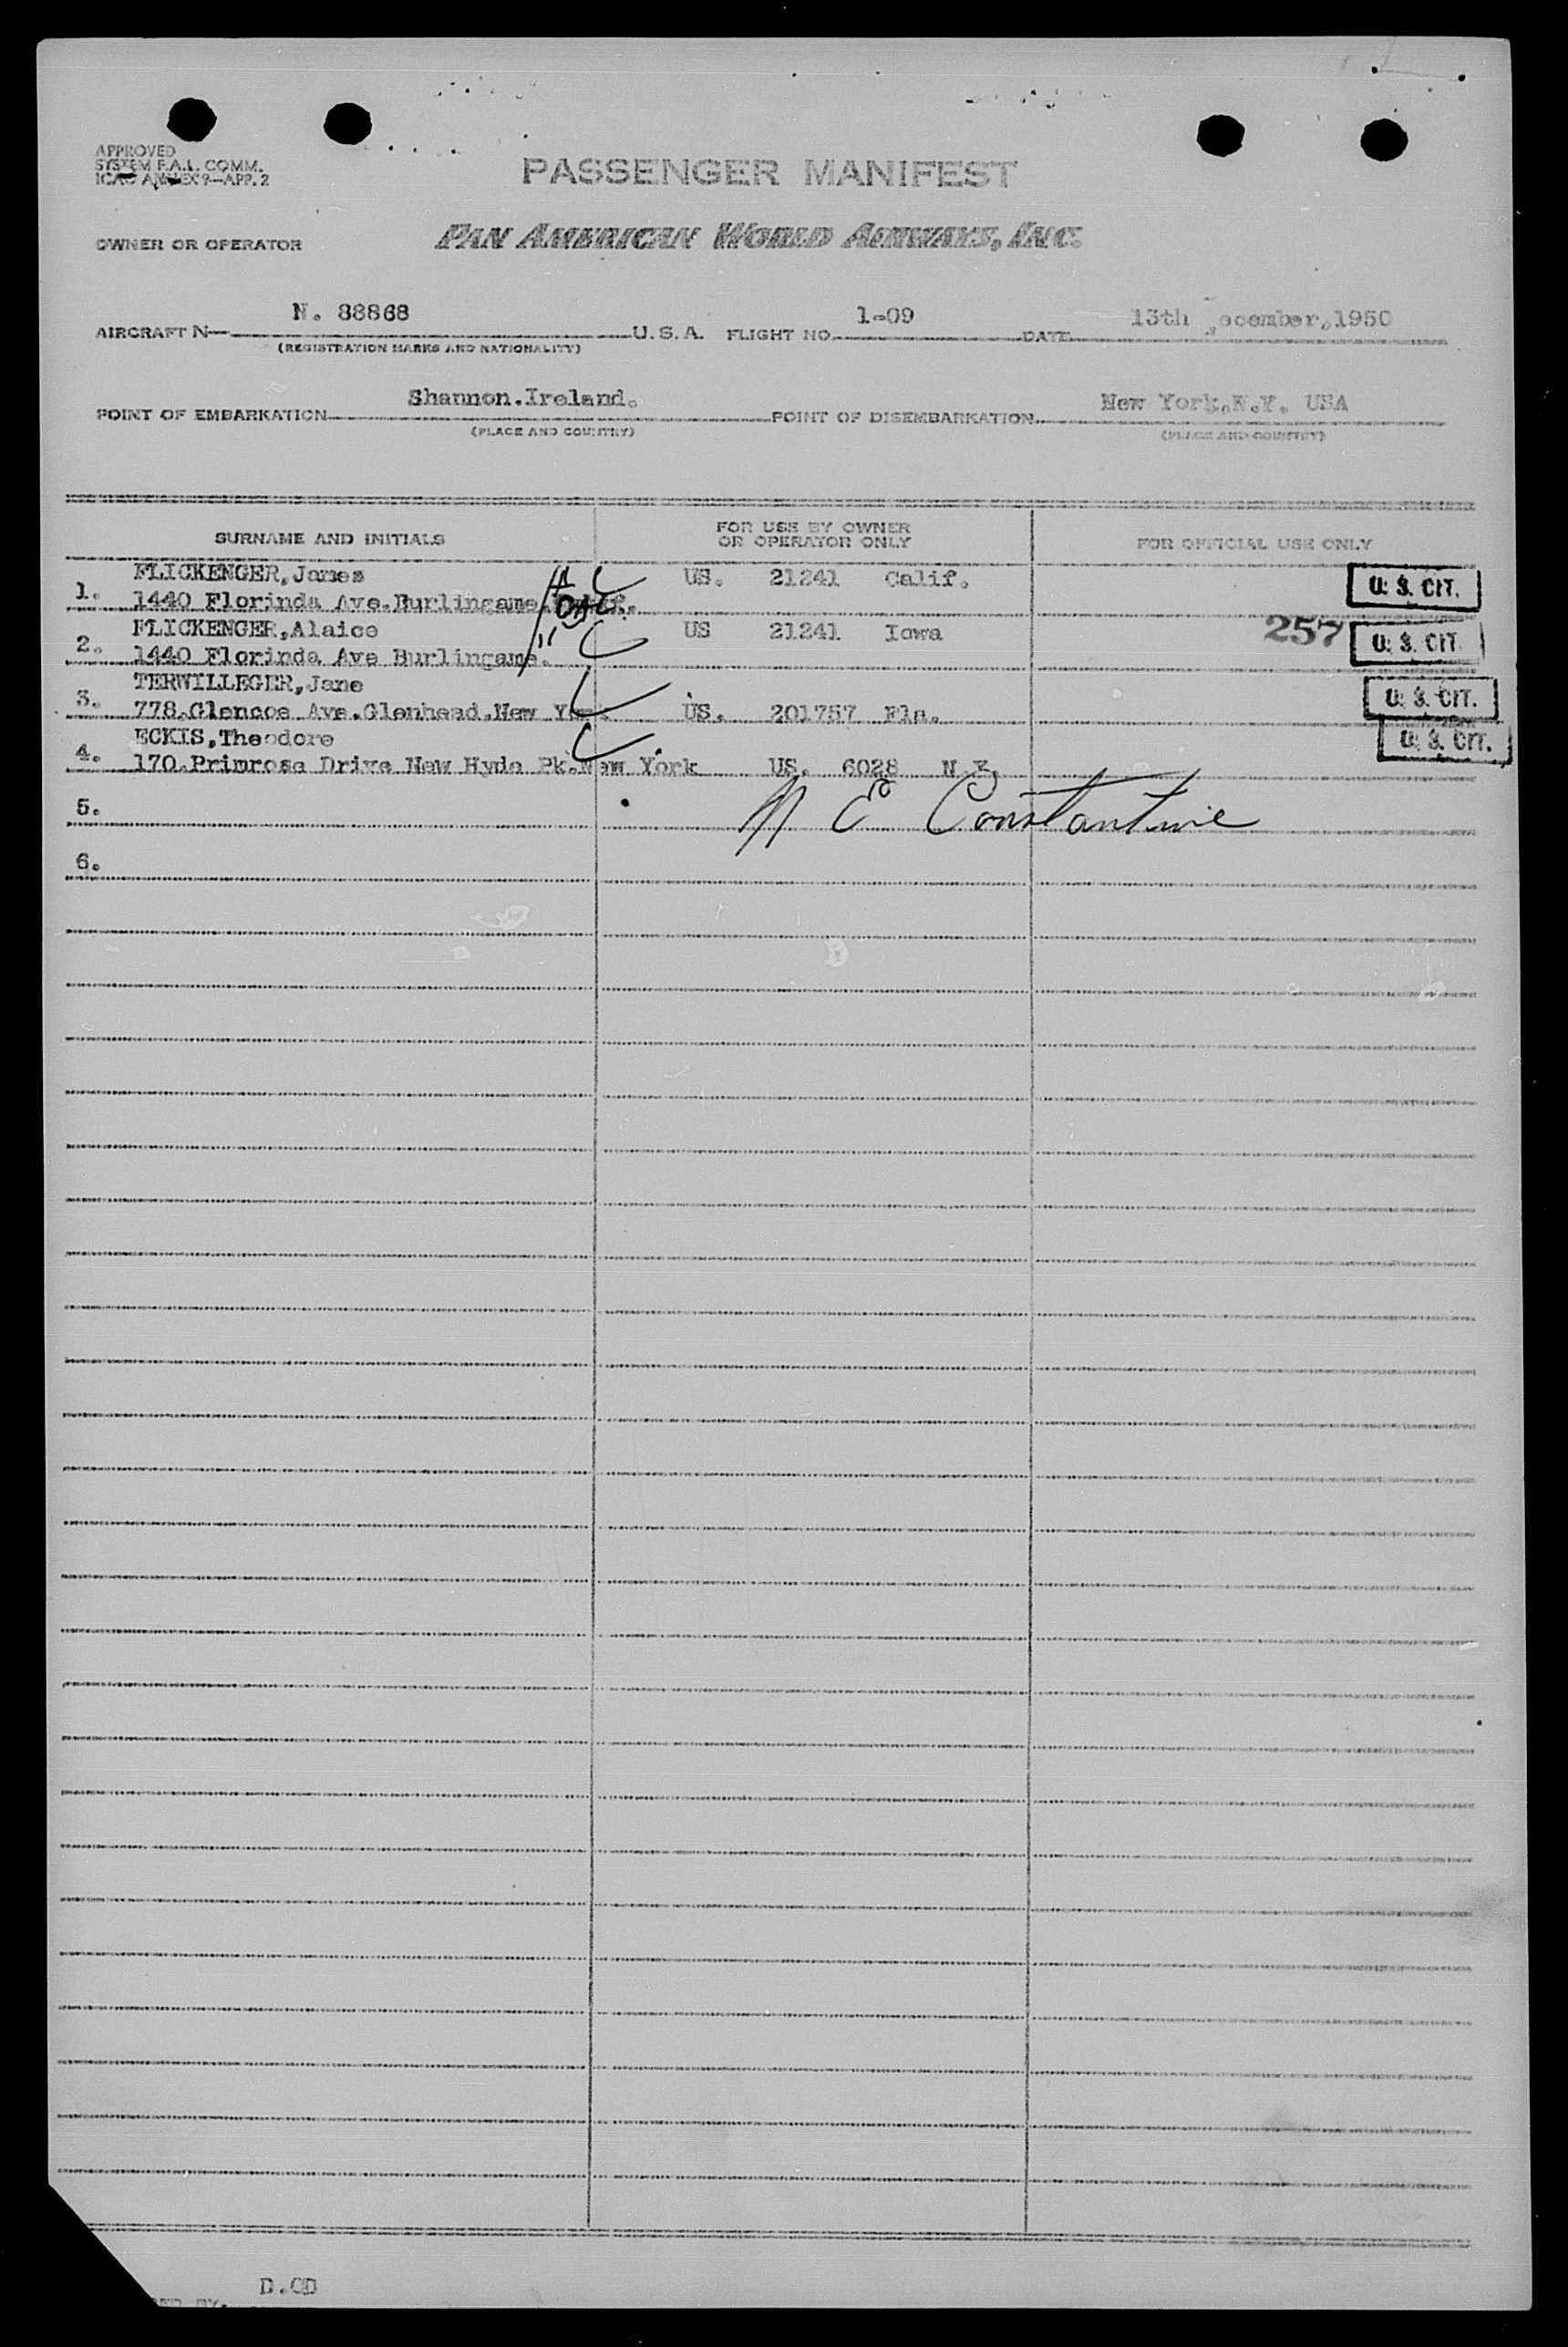 APPROVED
SYSTEM F.A.L. COMM.
ICAO ANNEX 9—APP. 2
PASSENGER MANIFEST
OWNER OR OPERATOR PAN AMERICAN WORLD AIRWAYS, INC.
AIRCRAFT N— N. 88868 U.S.A. FLIGHT NO. 1-09 DATE 13th ecember,1950
(REGISTRATION MARKS AND NATIONALITY)
POINT OF EMBARKATION Shannon.Ireland. POINT OF DISEMBARKATION New York.N.Y. USA
(PLACE AND COUNTRY) (PLACE AND COUNTRY)
SURNAME AND INITIALS FOR USE BY OWNER OR OPERATOR ONLY FOR OFFICIAL USE ONLY
FLICKENGER,James US. 21241 Calif. U. S. CIT.
1. 1440 Florinda Ave.Burlingame. CAL
FLICKENGER,Alaice US 21241 Iowa 257 U. S. CIT.
2. 1440 Florinda Ave Burlingame. "
TERWILLEGER,Jane U. S. CIT.
3. 778.Glencoe Ave.Glenhead.New York US. 201757 Fla.
ECKIS,Theodore U. S. CIT.
4. 170.Primrose Drive New Hyde Pk.New York US. 6028 N.Y.
5. N E Constantine
6.
D.OD